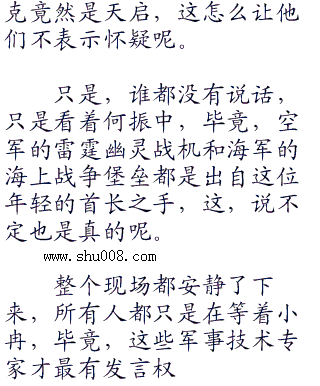 克竟然是天启，这怎么让他
们不表示怀疑呢。
只是，谁都没有说话，
只是看着何振中，毕竟，空
军的雷霆幽灵战机和海军的
海上战争堡垒都是出自这位
年轻的首长之手，这，说不
定也是真的呢。
www.shu008.com
整个现场都安静了下
来，所有人都只是在等着小
冉，毕竟，这些军事技术专
家才最有发言权